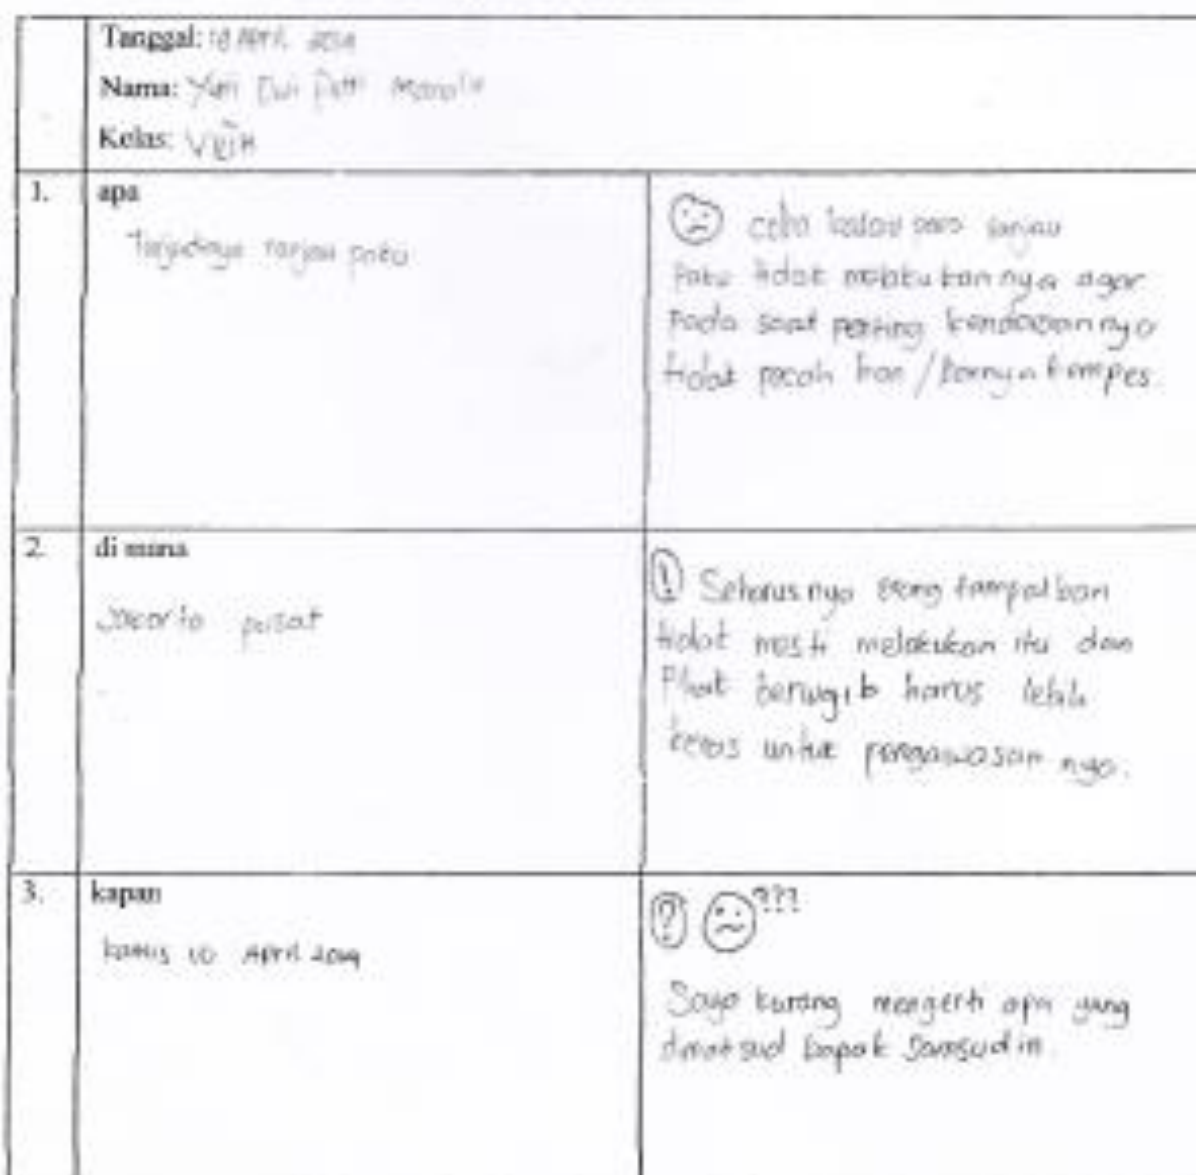 Tanggal: 18 April
Nama: Yuri Dwi
Kelas: VIII
1. apa
Terjadinya ranjau paku
coba kalau para ranjau
Paku tidak melakukannya agar
pada saat penting kendaraannya
tidak pecah ban / bannya kempes.
2. di mana
Jakarta pusat
Seharusnya tampal ban
tidak mesti melakukan itu dan
Pihak berwajib harus lebih
keras untuk pengawasan nya.
3. kapan
kamis 10 April 2014
? ???
Saya kurang mengerti apa yang
dimaksud bapak Samsudin.